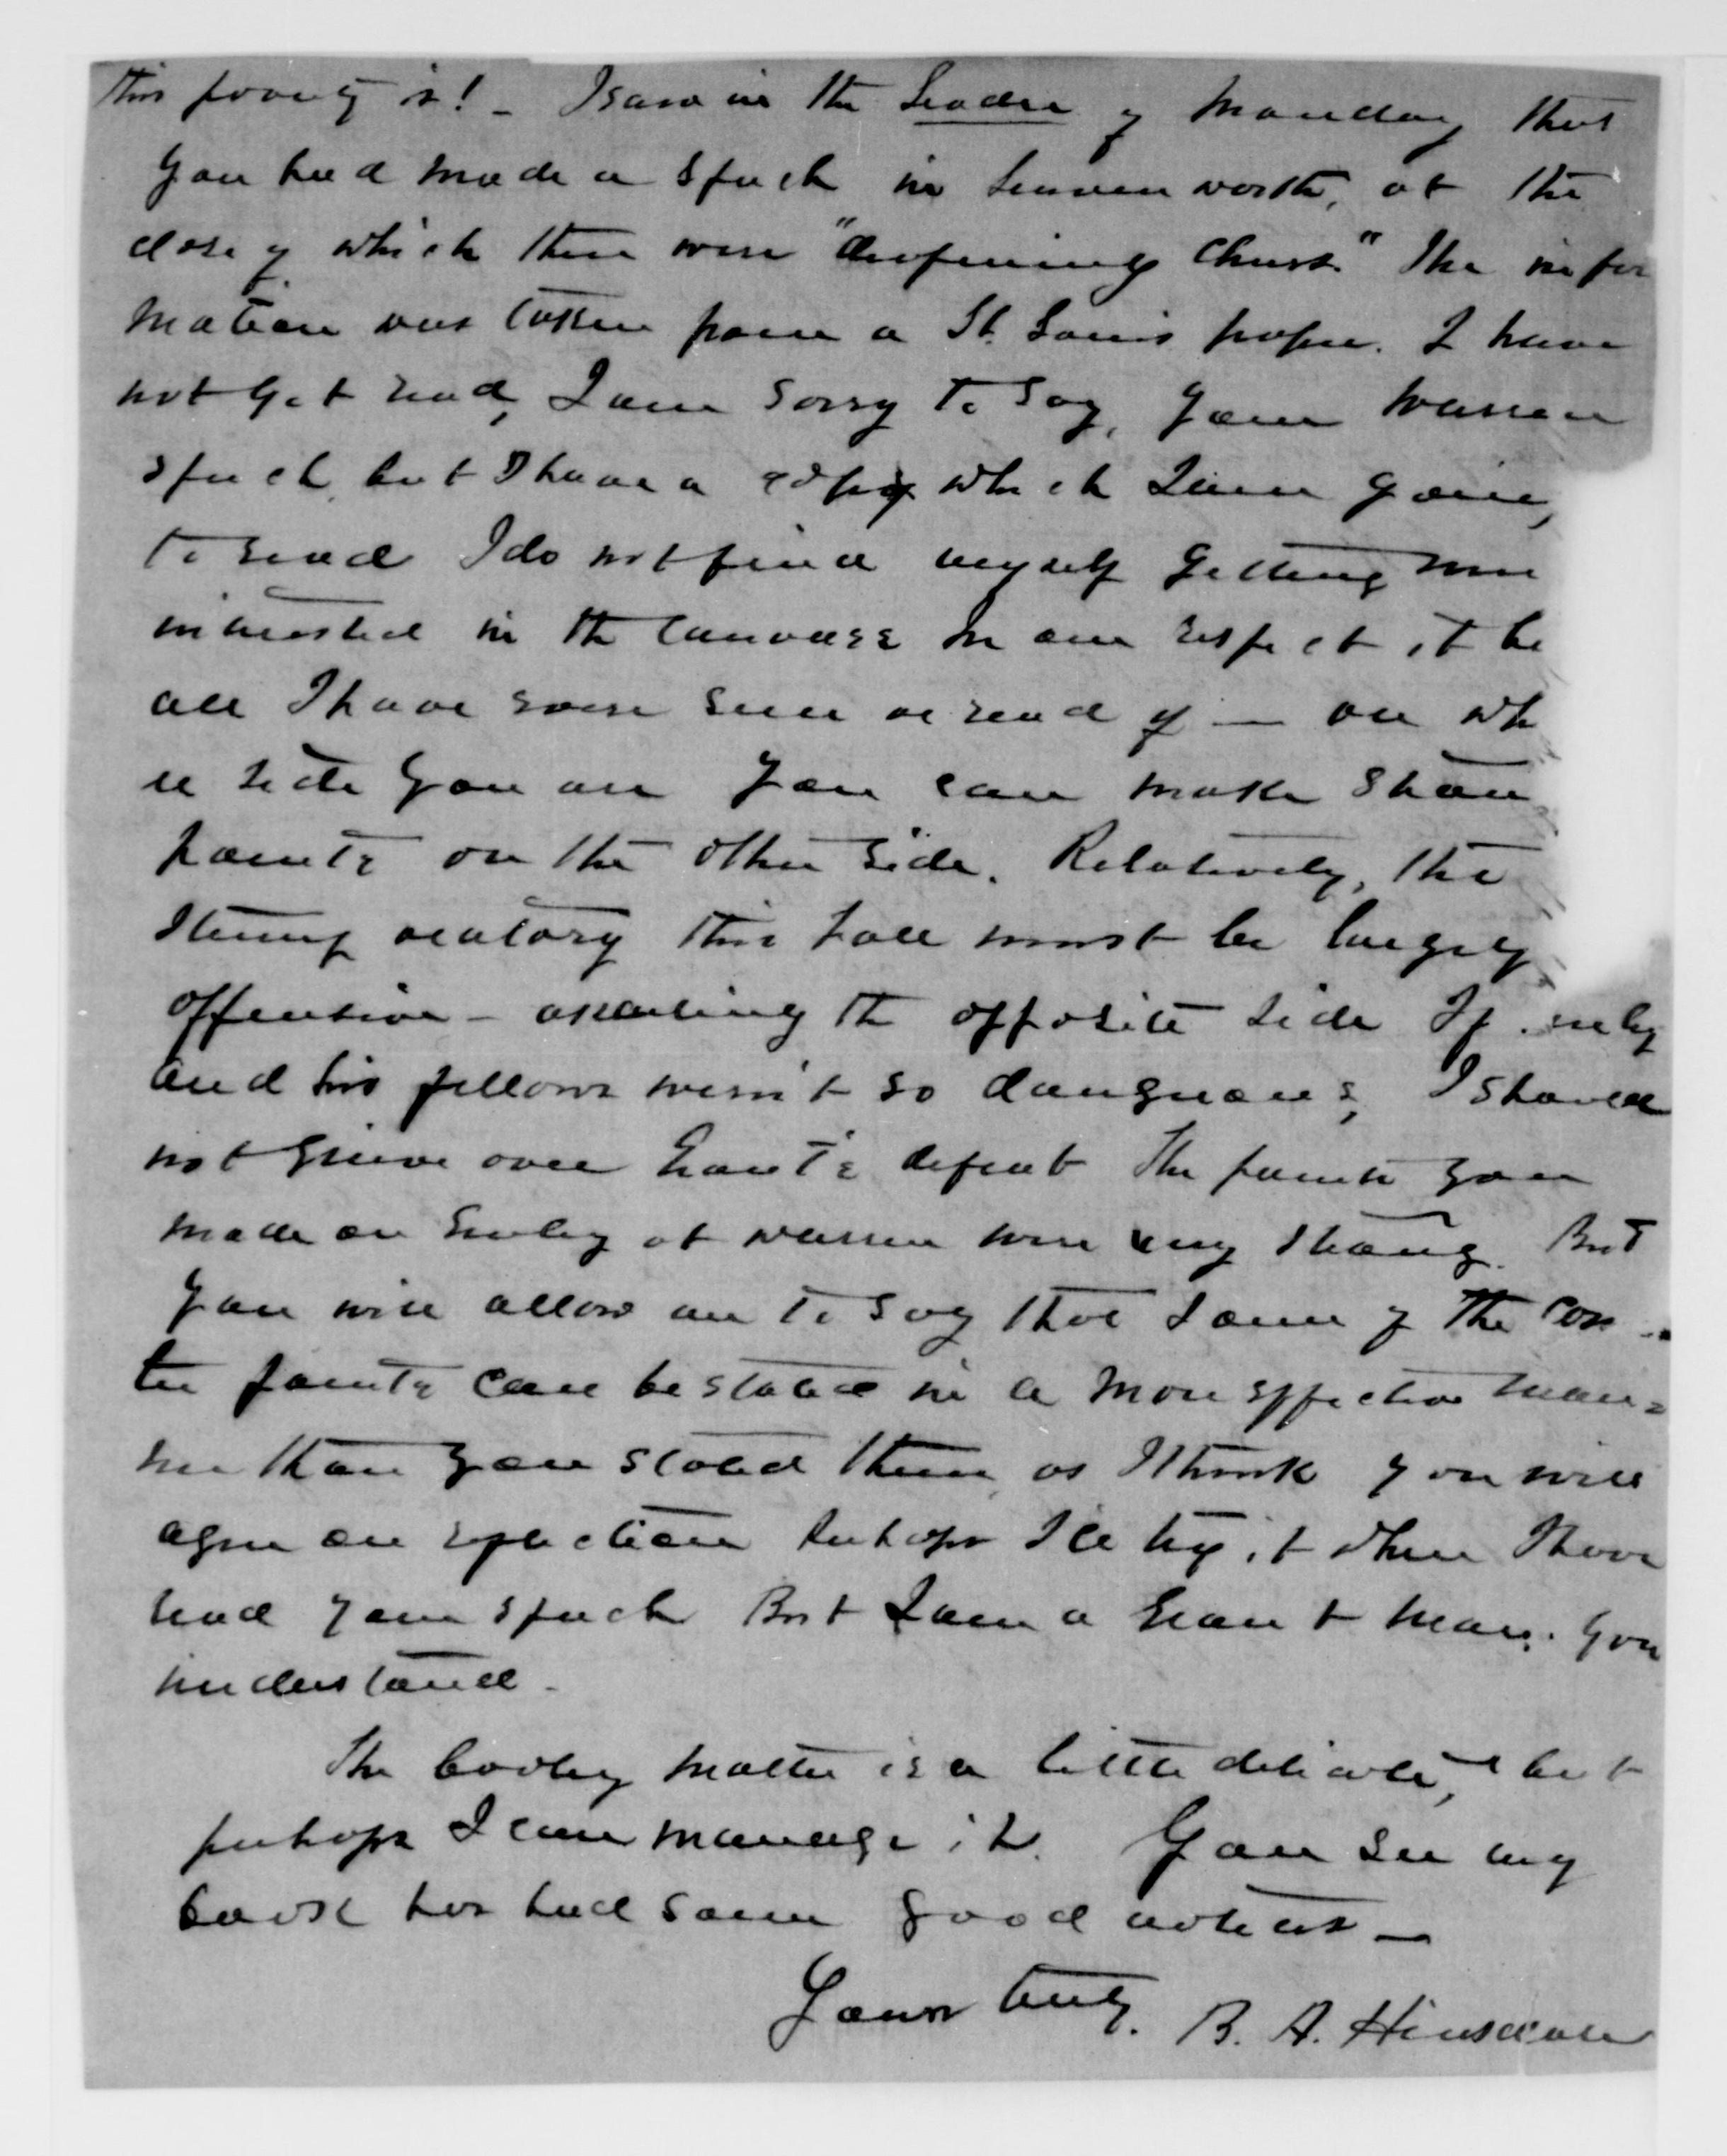 this poverty is! - I saw in the Leader of Monday that
you had made a speech in Leavenworth, at the
close of which there were "deafening cheers." The infor
mation was taken from a St. Louis paper. I have
not yet read, I am sorry to say, your Warren
speech, but I have a copy which I am going
to read I do not find myself getting more
interested in the canvass In one respect it be
all I have ever seen or read of — on wh
er side you are you can make strong
points on the other side. Relatively, the
stump oratory this fall must be largely
offensive - assailing the opposite side If
and his fellows weren't so dangerous, I should
not grieve over Grant's defeat The points you
made on Greeley at Warren were very strong. But
you will allow me to say that some of the
points can be stated in a more effective man=
ner than you stated them, as I think you will
agree on reflection Perhaps I'll try it when I have
read your speech But I am a Grant man, you
understand.
The Cooley matter is a little delicate, but
perhaps I can manage it. You see my
book has had some good notices —
Yours truly. B. A. Hinsdale